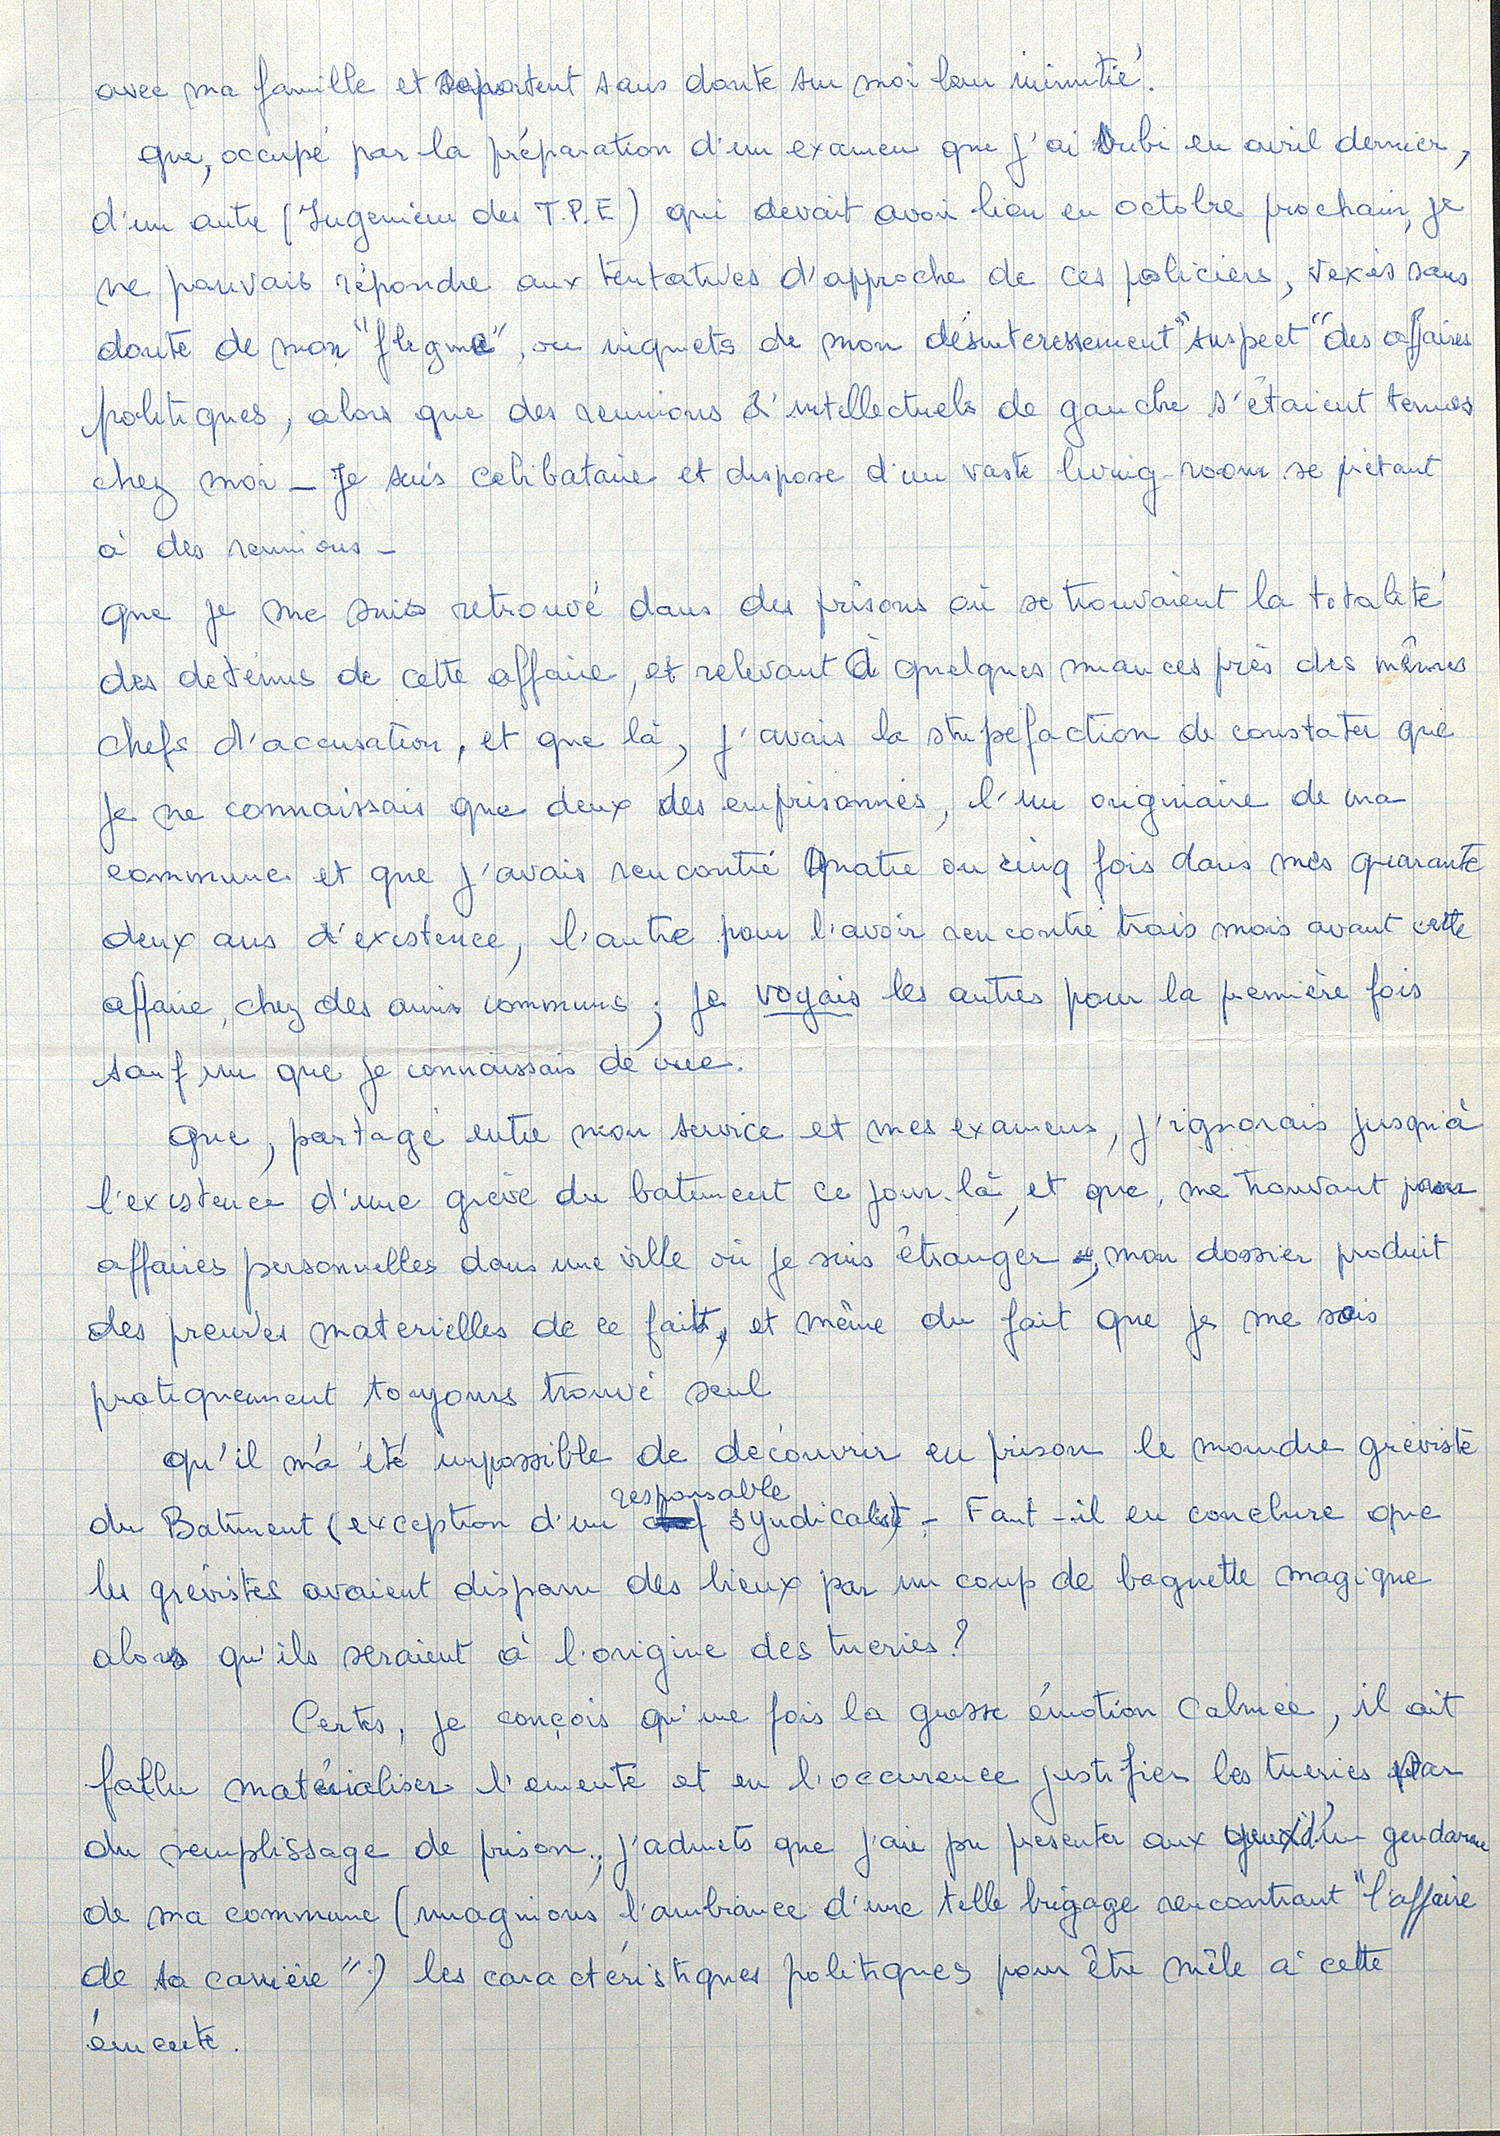 avec ma famille et reportent sans doute sur moi leur inimitié.
que, occupé par la préparation d'un examen que j'ai subi en avril dernier,
d'un autre (Ingenieur des T.P.E) qui devait avoir lieu en octobre prochain, je
ne pouvais répondre aux tentatives d'approche de ces policiers, vexés sans
doute de mon "flegme", ou inquiets de mon désinteressement "suspect" des affaires
politiques, alors que des reunions d'intellectuels de gauche s'étaient tenues
chez moi _ Je suis celibataire et dispose d'un vaste living-room se prêtant
à des reunions _
que je me suis retrouvé dans des prisons où se trouvaient la totalité
des detenus de cette affaire, et relevant à quelques nuances près des mêmes
chefs d'accusation, et que là, j'avais la stupefaction de constater que
je ne connaissais que deux des emprisonnés, l'un originaire de ma
commune et que j'avais rencontré quatre ou cinq fois dans mes quarante
deux ans d'existence, l'autre pour l'avoir rencontré trois mois avant cette
affaire, chez des amis communs ; je voyais les autres pour la première fois
sauf un que je connaissais de vue.
que, partagé entre mon service et mes examens, j'ignorais jusqu'à
l'existence d'une grève du batiment ce jour-là, et que, me trouvant pour
affaires personnelles dans une ville où je suis étranger, mon dossier produit
des preuves materielles de ce fait, et même du fait que je me sois
pratiquement toujours trouvé seul
qu'il m'a été impossible de decouvrir en prison le moindre greviste
responsable
du Batiment (exception d'un chef syndicalist) - Faut-il en conclure que
les grévistes avaient disparu des lieux par un coup de baguette magique
alors qu'ils seraient à l'origine des tueries ?
Certes, je conçois qu'une fois la grosse émotion calmée, il ait
fallu matérialiser l'emeute et en l'occurence justifier les tueries par
du remplissage de prison., j'admets que j'aie pu presenter aux yeux d'un gendarme
de ma commune (imaginons l'ambiance d'une telle brigage rencontrant "l'affaire
de sa carrière".) les caractéristiques politiques pour être mêlé à cette
émeute.